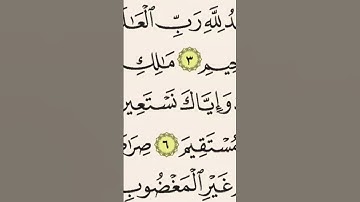 ـدُ لِلَّهِ رَبِّ الْعَالَـ
ـحِيمِ ٣ مَالِكِ
وَإِيَّاكَ نَسْتَعِيـ
ـمُسْتَقِيمَ ٦ صِرَا
غَيْرِ الْمَغْضُوبِ